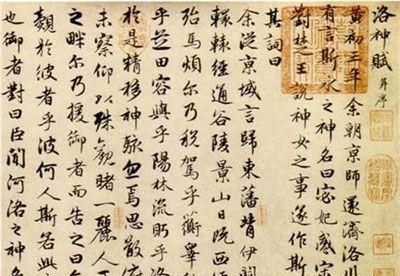 洛神賦 并序
黄初三年余朝京師還濟洛川
有言斯水之神名曰宓妃感宋
對楚王說神女之事遂作斯
其詞曰
余從京域言歸東藩背伊
轘轅經通谷陵景山日既西
殆馬煩尔乃税駕乎蘅皋
乎芝田容與乎陽林流眄乎洛
於是精移神駭忽焉思散
未察仰以殊觀睹一麗人
之畔尔乃援御者而告之曰
覿於彼者乎彼何人斯若此
也御者對曰臣聞河洛之神名